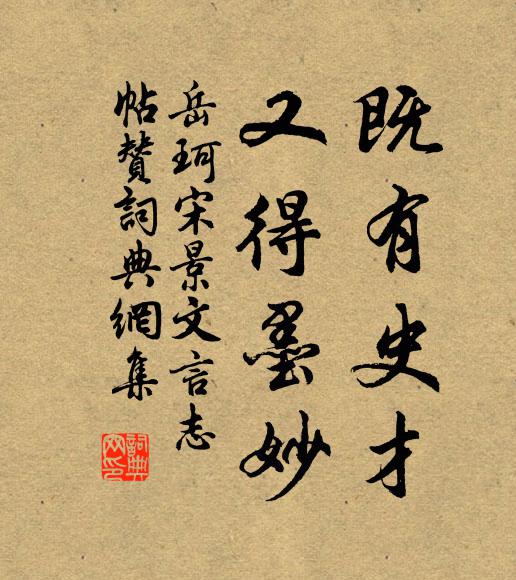 既有史才
又得墨妙
岳珂宋景文言志
帖贊詞典網集
詞典網印